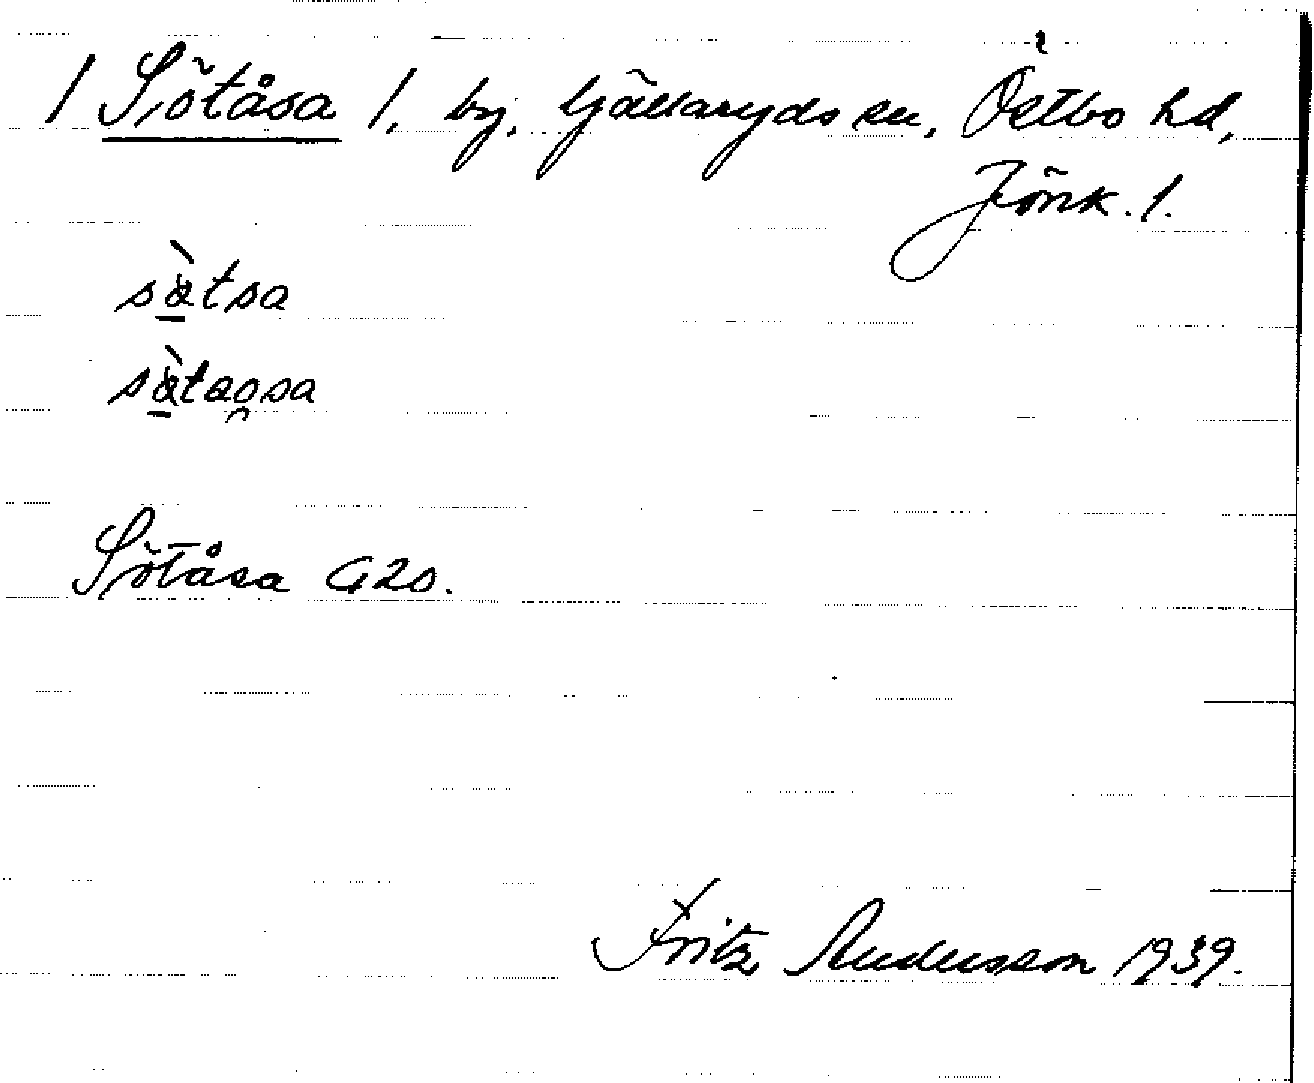 / Sötåsa /, by, Gällaryds sn, Östbo hd,
Jönk. l.
sàtsa
sàtaosa
Sötåsa G20.
Fritz Andersson 1939.